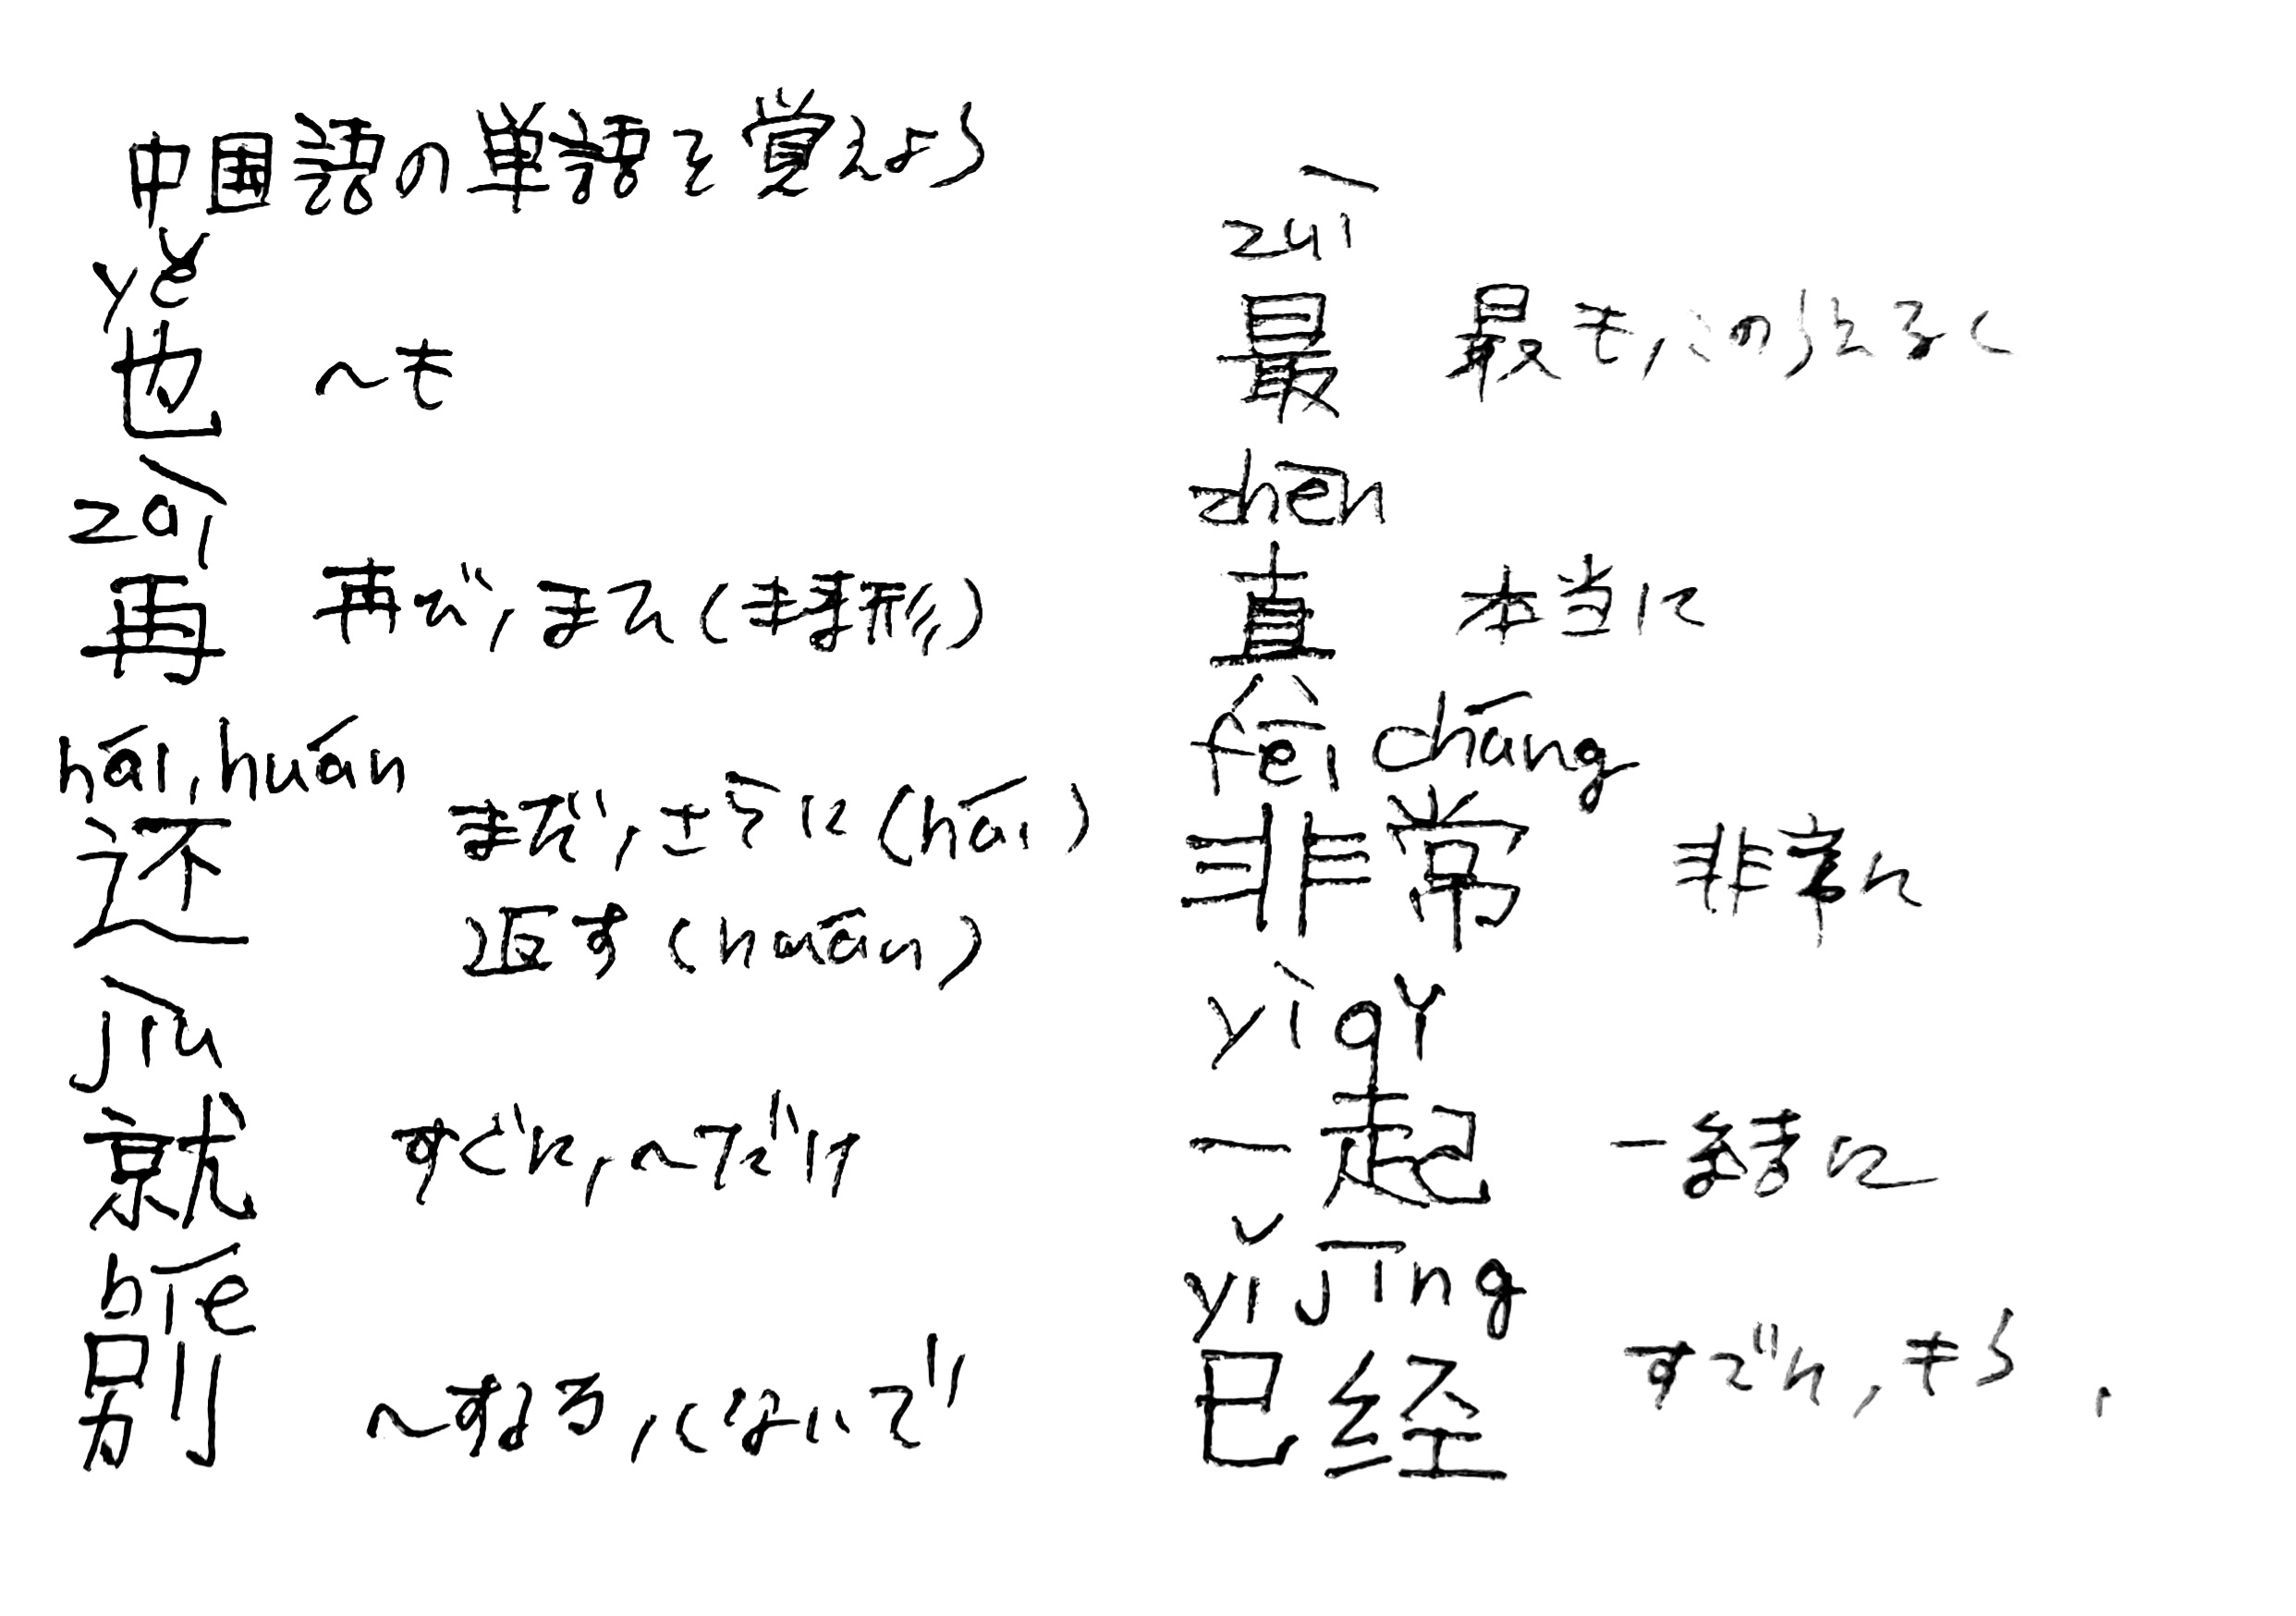 中国語の単語を覚えよう
yě
也 〜も
zài
再 再び,また(未来形)
hái,huán
还 まだ,さらに(hái)
返す(huán)
jiù
就 すぐに,〜だけ
bié
别 〜するな,しないで
zuì
最 最も,この上なく
zhēn
真 本当に
fēi cháng
非常 非常に
yì qǐ
一起 一緒に
yǐ jīng
已经 すでに,もう